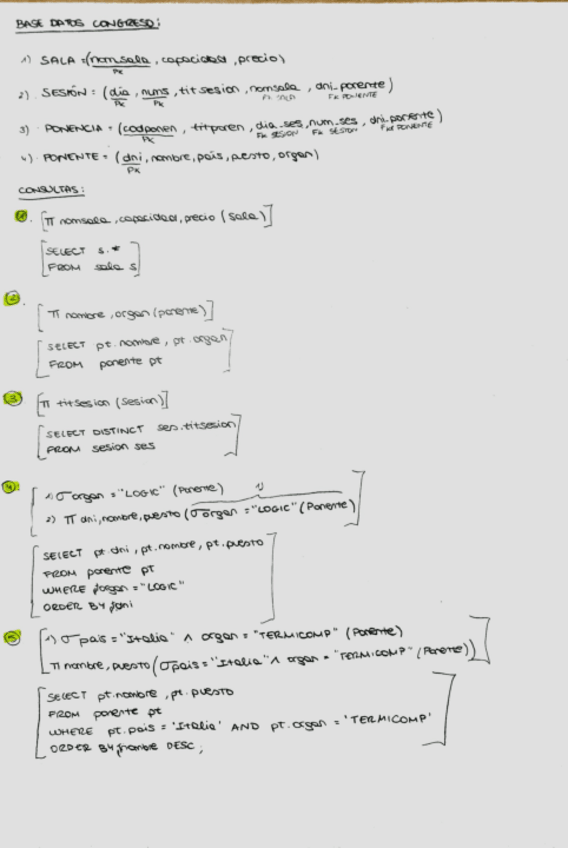 BASE DATOS CONGRESO:
1) SALA = (nomsala, capacidad, precio)
PK
2) SESIÓN = (dia, nums, titsesion, nomsala, dni_ponente)
PK PK FK SALA FK PONENTE
3) PONENCIA = (codponen, titponen, dia_ses, num_ses, dni_ponente)
PK FK SESION FK SESION FK PONENTE
4) PONENTE = (dni, nombre, pais, puesto, organ)
PK
CONSULTAS:
1. [π nomsala, capacidad, precio (sala)]
[SELECT s.*
FROM sala s]
2. [π nombre, organ (ponente)]
[SELECT pt.nombre, pt.organ
FROM ponente pt]
3 [π titsesion (sesion)]
[SELECT DISTINCT ses.titsesion
FROM sesion ses]
4. [1) σ organ = "LOGIC" (Ponente) 1)
2) π dni, nombre, puesto (σ organ = "LOGIC" (Ponente)]
[SELECT pt.dni, pt.nombre, pt.puesto
FROM ponente pt
WHERE organ = "LOGIC"
ORDER BY dni]
5 [1) σ pais = "Italia" ∧ organ = "TERMICOMP" (Ponente)
π nombre, puesto (σ pais = "Italia" ∧ organ = "TERMICOMP" (Ponente))]
[SELECT pt.nombre, pt.puesto
FROM ponente pt
WHERE pt.pais = 'Italia' AND pt.organ = 'TERMICOMP'
ORDER BY nombre DESC;]